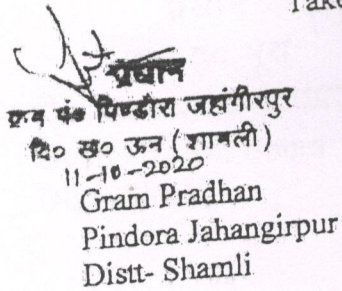 Take
प्रधान
ग्राम पं० पिण्डौरा जहांगीरपुर
वि० ख० ऊन (शामली)
11-10-2020
Gram Pradhan
Pindora Jahangirpur
Distt- Shamli